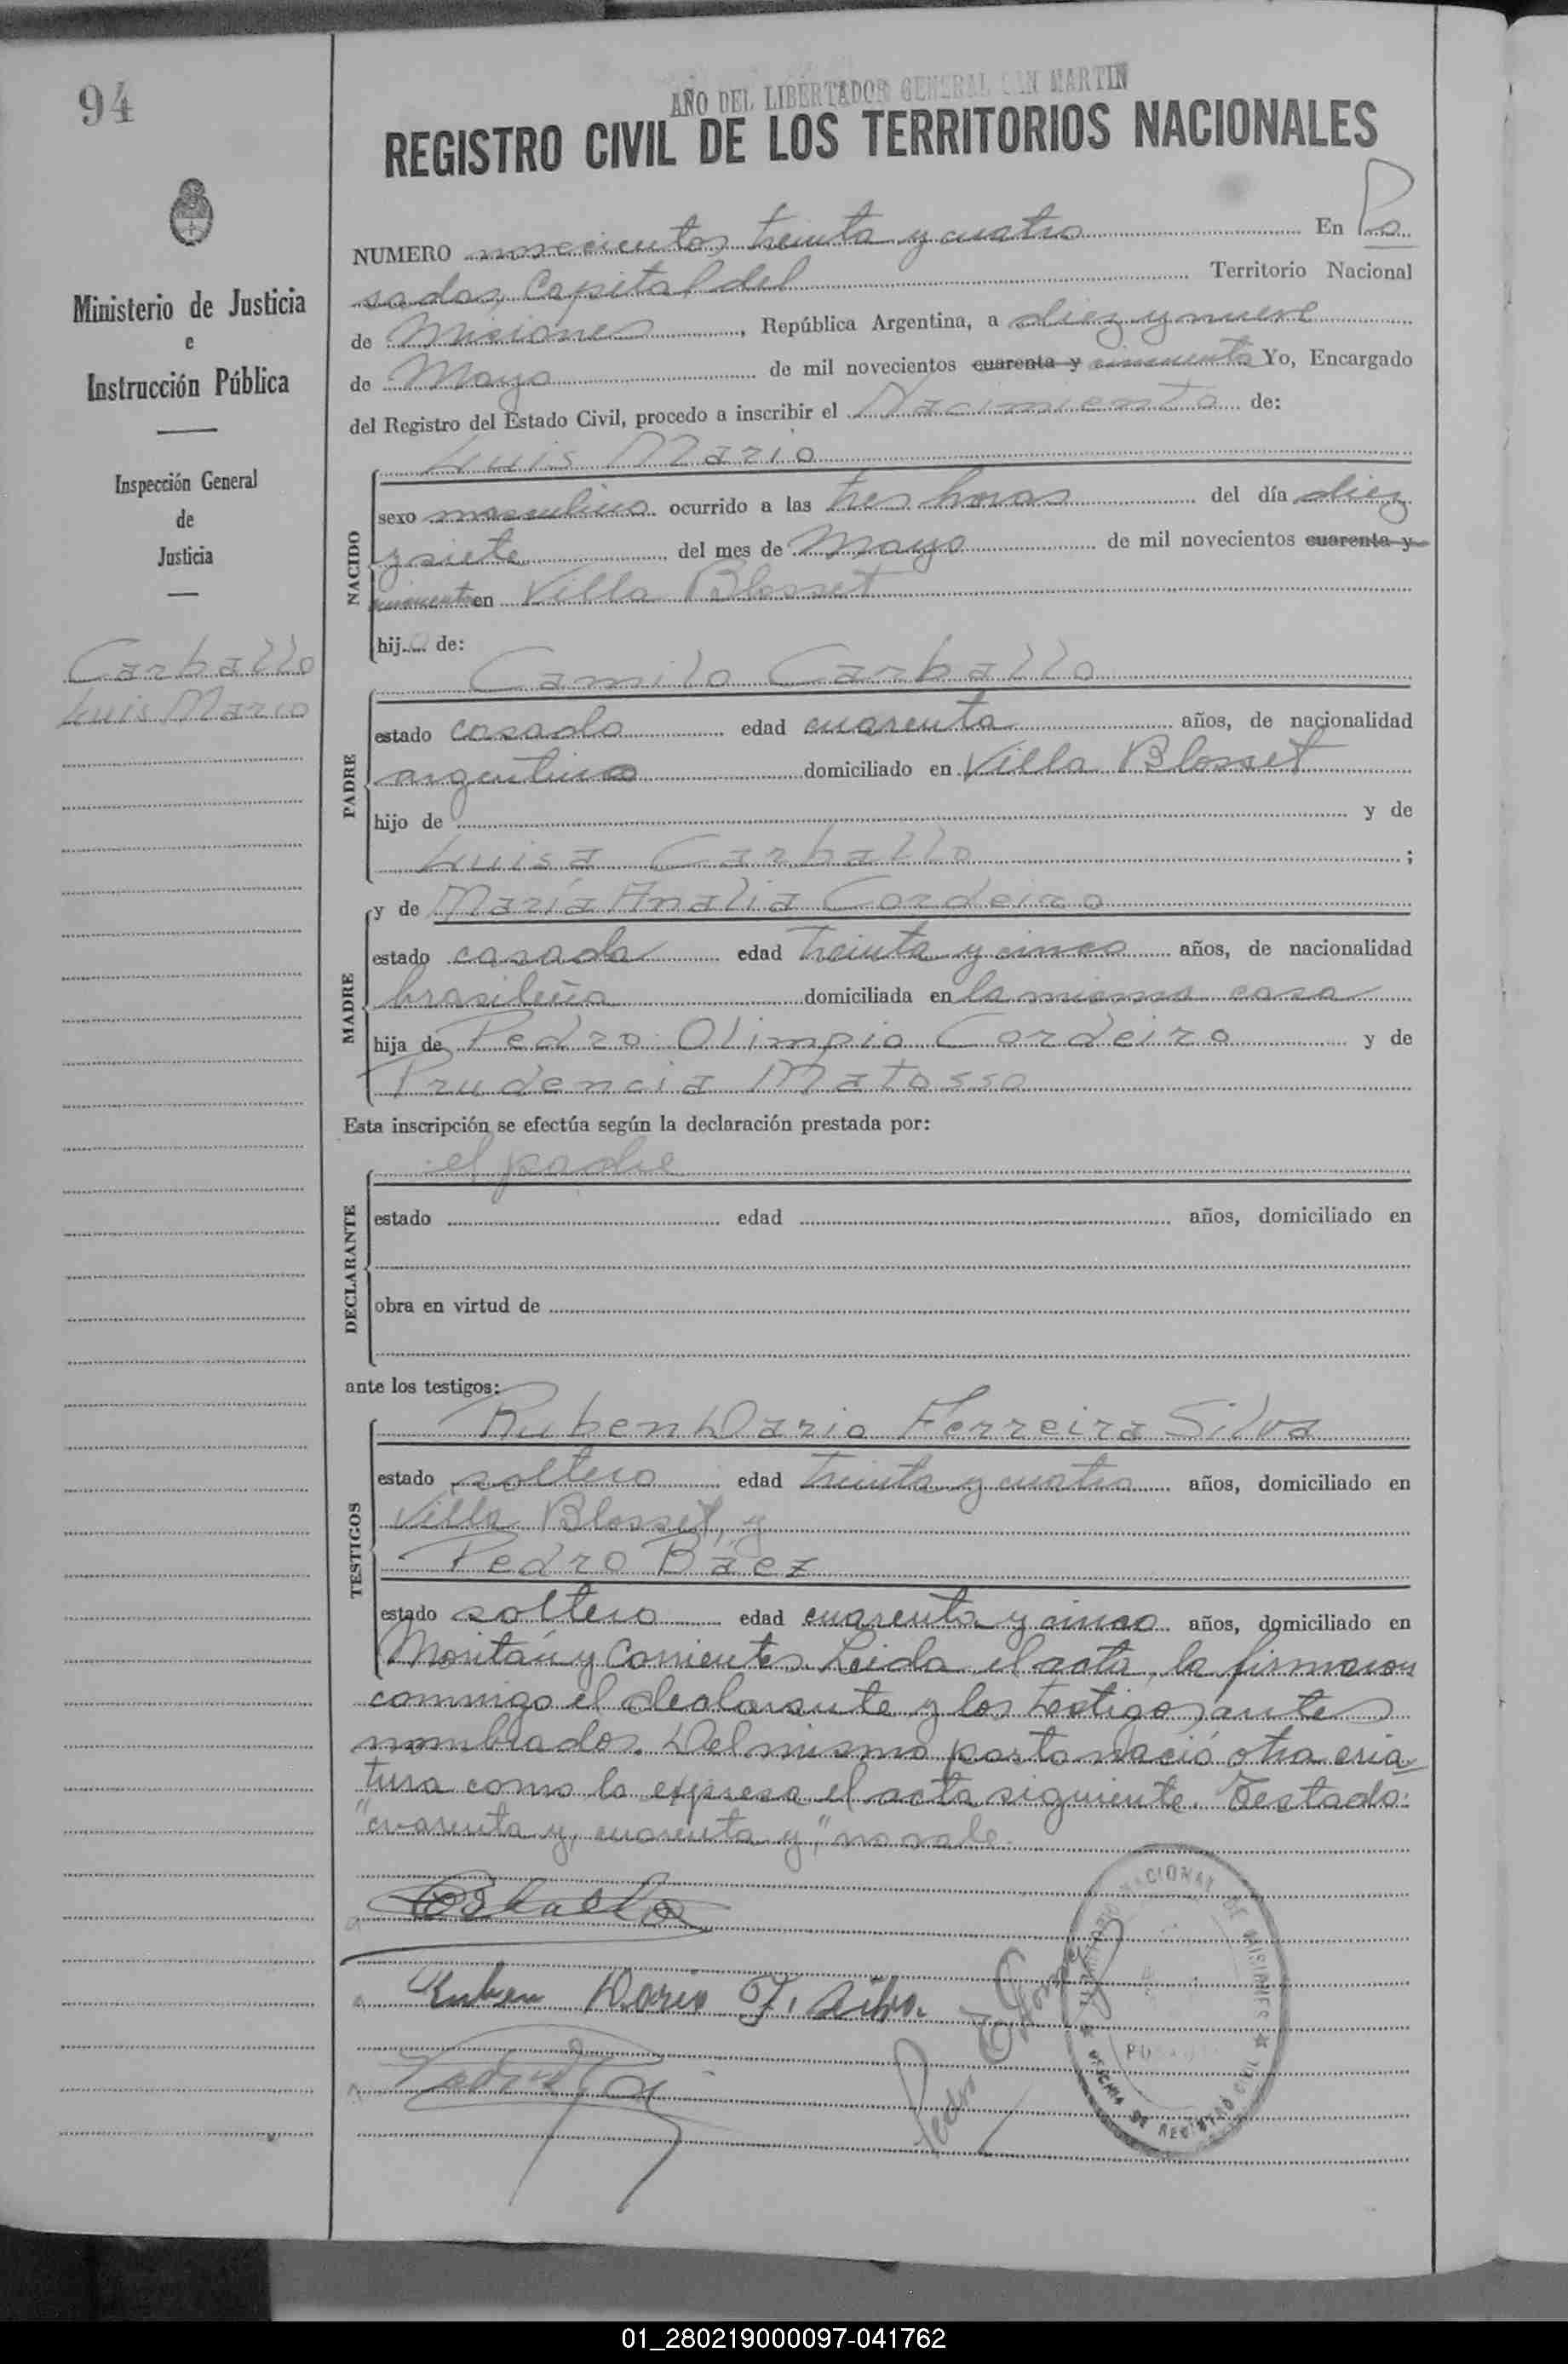 94
AÑO DEL LIBERTADOR GENERAL SAN MARTIN
REGISTRO CIVIL DE LOS TERRITORIOS NACIONALES
Ministerio de Justicia
e
Instrucción Pública
Inspección General
de
Justicia
Carballo
Luis Mario
NUMERO novecientos treinta y cuatro En Po
sadas, Capital del Territorio Nacional
de Misiones, República Argentina, a diez y nueve
de Mayo de mil novecientos cuarenta y cincuenta Yo, Encargado
del Registro del Estado Civil, procedo a inscribir el Nacimiento de:
NACIDO
Luis Mario
sexo masculino ocurrido a las tres horas del día diez
y siete del mes de Mayo de mil novecientos cuarenta y
cincuenta en Villa Blosset
hijo de:
PADRE
Camilo Carballo
estado casado edad cuarenta años, de nacionalidad
argentina domiciliado en Villa Blosset
hijo de y de
Luisa Carballo ;
MADRE
y de María Analia Cordeiro
estado casada edad treinta y cinco años, de nacionalidad
brasileña domiciliada en la misma casa
hija de Pedro Olimpio Cordeiro y de
Prudencia Matosso
Esta inscripción se efectúa según la declaración prestada por:
DECLARANTE
el padre
estado edad años, domiciliado en
obra en virtud de
ante los testigos:
TESTIGOS
Ruben Dario Ferreira Silva
estado soltero edad treinta y cuatro años, domiciliado en
Villa Blosset, y
Pedro Báez
estado soltero edad cuarenta y cinco años, domiciliado en
y Corrientes. Leida el acta, la firmaron
conmigo el declarante y los testigos antes
nombrados. Del mismo parto nació otra cria
tura como lo expresa el acta siguiente. Testado:
"cuarenta y, cuarenta y," no vale.
Carballo
Ruben Dario F. Silva.
Pedro
TERRITORIO NACIONAL DE MISIONES
OFICINA DE REGISTRO CIVIL
01_280219000097-041762